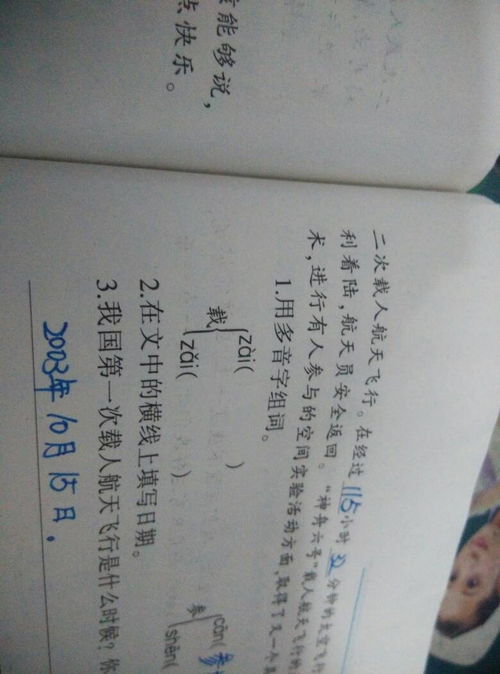 能够说，
点快乐。
二次载人航天飞行。在经过115小时32分钟的太空飞行
利着陆，航天员安全返回。“神舟六号”载人航天飞行的
术，进行有人参与的空间实验活动方面，取得了又一个具
1.用多音字组词。
载 zài( )
zǎi( )
参 cān(参
shēn(
2.在文中的横线上填写日期。
3.我国第一次载人航天飞行是什么时候？你
2003年10月15日。